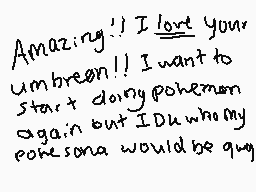 Amazing!! I love your
umbreon!! I want to
start doing pokemon
again but IDk who my
pokesona would be